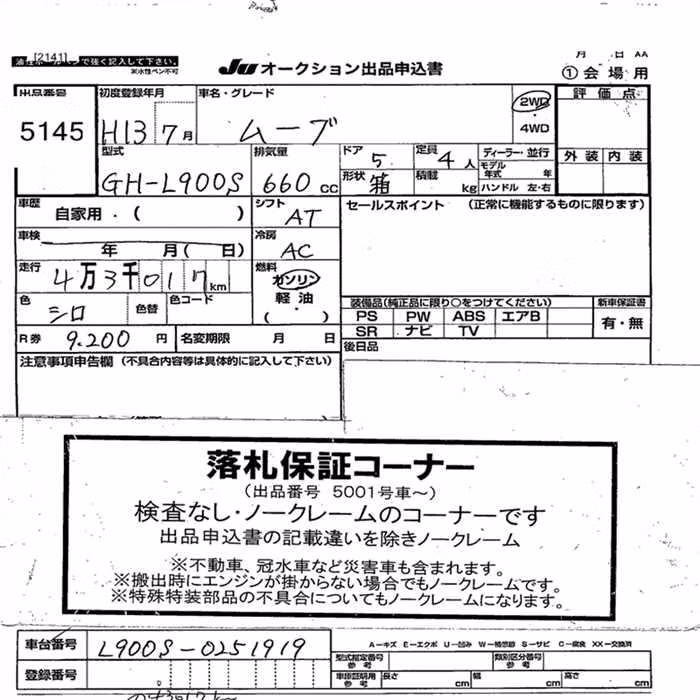 [2141]
油性ボールペンで強く記入して下さい。
※水性ペン不可
JU オークション出品申込書
月 日 AA
① 会場用
出品番号
5145
初度登録年月
H13 7月
車名・グレード
ムーブ
2WD
・
4WD
評価点
外装 内装
型式
GH-L900S
排気量
660 cc
ドア
5
定員
4人
ディーラー・並行
形状
箱
積載
kg
モデル年式 年
ハンドル 左・右
車歴
自家用・( )
シフト
AT
セールスポイント (正常に機能するものに限ります)
車検
年 月( 日)
冷房
AC
走行
4万3千017km
燃料
ガソリン
・
軽油
( )
色
シロ
色替
色コード
装備品(純正品に限り○をつけてください)
新車保証書
PS PW ABS エアB
SR ナビ TV
有・無
R券
9.200円
名変期限 月 日
後日品
注意事項申告欄 (不具合内容等は具体的に記入して下さい)
落札保証コーナー
(出品番号 5001号車~)
検査なし・ノークレームのコーナーです
出品申込書の記載違いを除きノークレーム
※不動車、冠水車など災害車も含まれます。
※搬出時にエンジンが掛からない場合でもノークレームです。
※特殊特装部品の不具合についてもノークレームになります。
車台番号
L900S-0251919
A-キズ E-エクボ U-凹み W-補修跡 S-サビ C-腐食 XX-交換済
型式指定番号
参考
類別区分番号
参考
登録番号
車庫証明用
参考
長さ cm
幅 cm
高さ cm